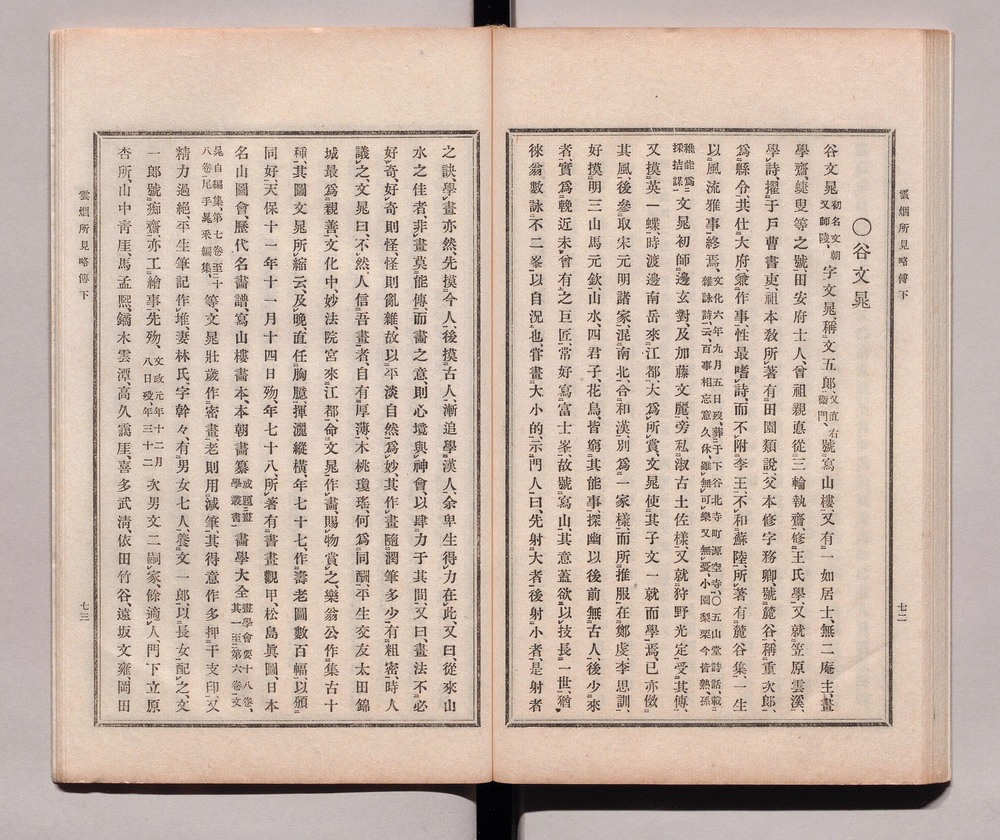 雲烟所見略傳下
七二
〇谷文晁
谷文晁、初名文朝又師陵、字文晁、稱文五郎、又直右衞門、號寫山樓、又有一如居士、無二庵主、畫
學齋、蜨叟等之號、田安府士人、曾祖親惪從三輪執齋、修王氏學、又就笠原雲溪、
學詩、擢于戸曹書吏、祖本敎所著有田園類說、父本修字務卿、號麓谷、稱重次郎、
爲縣令、共仕大府、兼作事、性最嗜詩、而不附李王、不和蘇陸、所著有麓谷集、一生
以風流雅事終焉、文化六年九月五日歿、葬于下谷北寺町源空寺、〇五山堂詩話、載雜詠詩云、百事相忘意久休、雖無可樂又無憂、小園梨栗今皆熟、孫
雅能爲採拮謀、文晁初師邊玄對、及加藤文麗、旁私淑古土佐樣、又就狩野光定受其傳、
又摸英一蝶、時渡邊南岳來江都、大爲所賞、文晁使其子文一就而學焉、已亦倣
其風、後參取宋元明諸家、混南北、合和漢、別爲一家樣、而所推服在鄭虔李思訓、
好摸明三山馬元欽、山水四君子花鳥、皆窮其能事、探幽以後前無古人、後少來
者、實爲輓近未曾有之巨匠、常好寫富士峯、故號寫山、其意蓋欲以技長一世、猶
徠翁數詠不二峯以自況也、嘗畫大小的、示門人曰、先射大者、後射小者、是射者
之訣、學畫亦然、先摸今人、後摸古人、漸追學漢人、余卑生得力在此、又曰從來山
水之佳者、非畫莫能傳、而畫之意、則心境與神會、以肆力于其間、又曰、畫法不必
好奇、好奇則怪、怪則亂雜、故以平淡自然爲妙、其作畫隨潤筆多少、有粗密、時人
議之、文晁曰、不然、人信吾畫者、自有厚薄、木桃瓊瑤何爲同酬、平生交友太田錦
城最爲親善、文化中、妙法院宮來江都、命文晁作畫、賜物賞之、樂翁公作集古十
種、其圖文晁所縮云、及晚直任胸臆、揮灑縱橫、年七十七、作壽老圖數百幅、以頒
同好、天保十一年十一月十四日歿、年七十八、所著有書畫觀甲、松島眞圖、日本
名山圖會、歷代名畫譜、寫山樓畫本、本朝畫纂、或題畫學叢書、畫學大全、畫學會要十八卷、其一至第六卷文
晁自編集、第七卷至二十八卷尾、手晁釆編集、等、文晁壯歲作密畫、老則用減筆、其得意作多押干支印、又
精力過絕、平生筆記作堆、妻林氏、字幹々、有男女七人、養文一郎、以長女配之、文
一郎號痴齋、亦工繪事、先歿、文政元年十二月八日歿、年三十二、次男文二嗣家、餘適人、門下立原
杏所、山中靑厓、馬孟熙、鏑木雲潭、高久靄厓、喜多武淸、依田竹谷、遠坂文雍、岡田
雲烟所見略傳下
七三